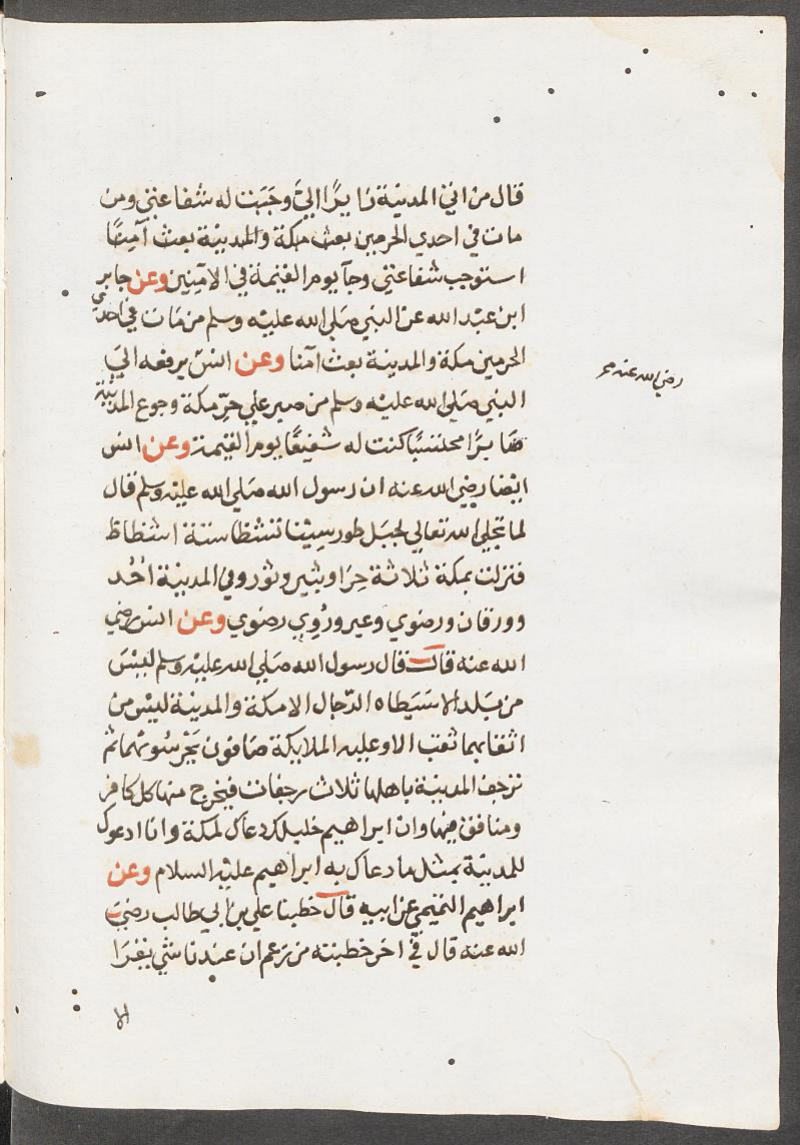 قال من اتي المدينة زايرًا اليَّ وجَبَت له شفاعتي ومن
مات في احدي الحرمين بعث مكة والمدينة بعث آمِنًا
استوجب شفاعتي وجآ يوم القيمة في الامِنِين وعن جابر
ابن عبد الله عن النبي صَلي الله عليه وسلم من مَات في احدي
الحرمين مكة والمدينة بعث امنا وعن انسٍ يرفعه الي
النبي صَلي الله عليه وسلم من صبر علي حرّ مكة وجوع المدينة
صَابرًا محتسبًا كنت له شفيعًا يوم القيمة وعن انس
ايضا رضي الله عنه ان رسول الله صَلي الله عليه وسلم قال
لما تجلي الله تعالي لجبَل طور سِيْنا تشظا ستة اشظاظ
فنزلت بمكة ثلاثة حِرَا وثبير وثور وفي المدينة اُحُد
وورقان ورضوي وعير ورُوِي رضوي وعن انس رضي
الله عنه قال قال رسول الله صَلي الله عليه وسلم ليْسَ
من بَلد الا سَيَطاه الدّجال الا مكة والمدينة ليسَ من
انقابهما نقب الا وعليه الملايكة صَافون يَحْرسُونهما ثم
ترجف المدينة باهلها ثلاث رجفات فيخرج منها كل كافر
ومنافق منها وان ابراهيم خليلك دعاك لمكة وانا ادعوك
للمدينة بمثل ما دعاك به ابراهيم عليه السلام وعن
ابراهيم التيمي عن ابيه قال خطبنا علي بن ابي طالب رضيَ
الله عنه قال في اخر خطبته من زعم ان عندنا شي يقرَا
الا
رضي الله عنه